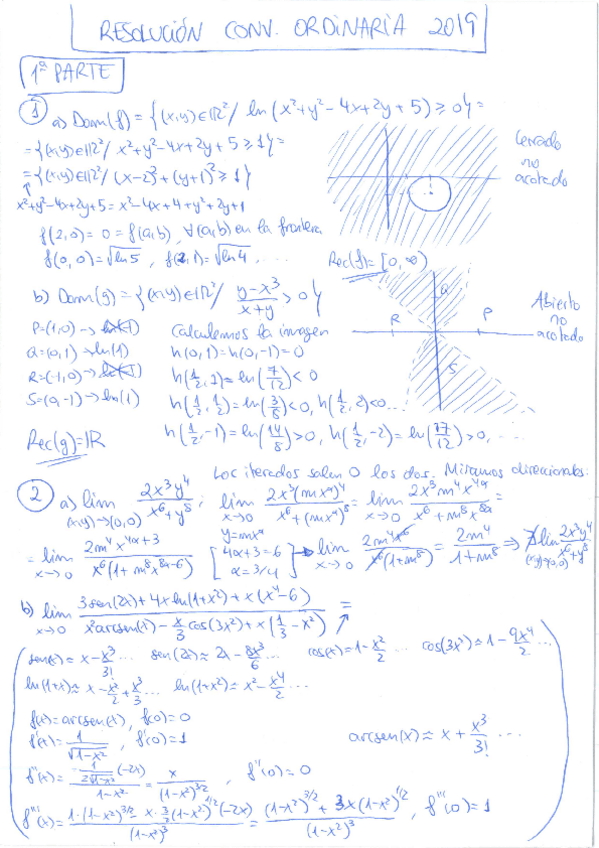 RESOLUCIÓN CONV. ORDINARIA 2019
1ª PARTE
1 a) Dom(f) = {(x,y)∈ℝ²/ ln(x²+y²-4x+2y+5) ≥ 0} =
= {(x,y)∈ℝ²/ x²+y²-4x+2y+5 ≥ 1} =
= {(x,y)∈ℝ²/ (x-2)²+(y+1)² ≥ 1}
x²+y²-4x+2y+5 = x²-4x+4+y²+2y+1
Cerrado
no
acotado
f(2,0) = 0 = f(a,b), ∀(a,b) en la frontera
f(0,0) = √ln5, f(2,1) = √ln4, ...
Rec(f) = [0,∞)
b) Dom(g) = {(x,y)∈ℝ²/ (y-x³)/(x+y) > 0}
P=(1,0) → ln(-1)
Q=(0,1) → ln(1)
R=(-1,0) → ln(-1)
S=(0,-1) → ln(1)
Rec(g) = ℝ
Calculemos la imagen
h(0,1) = h(0,-1) = 0
h(1/2,1) = ln(7/12) < 0
h(1/2,1/2) = ln(3/8) < 0, h(1/2,2) < 0 ...
h(1/2,-1) = ln(14/8) > 0, h(1/2,-2) = ln(17/12) > 0, ...
Q
R
P
S
Abierto
no
acotado
Los iterados salen 0 los dos. Miramos direccionales:
2 a) lim (x,y)→(0,0) 2x³y⁴/(x⁶+y⁸) ; lim x→0 y=mxᵅ 2x³(mxᵅ)⁴/(x⁶+(mxᵅ)⁸) = lim x→0 2x³m⁴x⁴ᵅ/(x⁶+m⁸x⁸ᵅ) =
= lim x→0 2m⁴x⁴ᵅ⁺³/(x⁶(1+m⁸x⁸ᵅ⁻⁶)) [4α+3=6 α=3/4] → lim x→0 2m⁴x⁶/(x⁶(1+m⁸)) = 2m⁴/(1+m⁸) ⇒ ∄ lim (x,y)→(0,0) 2x³y⁴/(x⁶+y⁸)
b) lim x→0 (3sen(2x)+4x ln(1+x²)+x(x⁴-6))/(x²arcsen(x)-x/3 cos(3x²)+x(1/3-x²)) =
sen(x) ≈ x-x³/3! ... sen(2x) ≈ 2x-8x³/6 ... cos(x) ≈ 1-x²/2 ... cos(3x²) ≈ 1-9x⁴/2 ...
ln(1+x) ≈ x-x²/2+x³/3 ... ln(1+x²) ≈ x²-x⁴/2 ...
f(x) = arcsen(x), f(0) = 0
f'(x) = 1/√(1-x²), f'(0) = 1
arcsen(x) ≈ x+x³/3! ...
f''(x) = (-1/(2√(1-x²))(-2x))/(1-x²) = x/(1-x²)^(3/2), f''(0) = 0
f'''(x) = (1·(1-x²)^(3/2) - x·3/2(1-x²)^(1/2)(-2x))/(1-x²)³ = ((1-x²)^(3/2)+3x(1-x²)^(1/2))/(1-x²)³, f'''(0) = 1